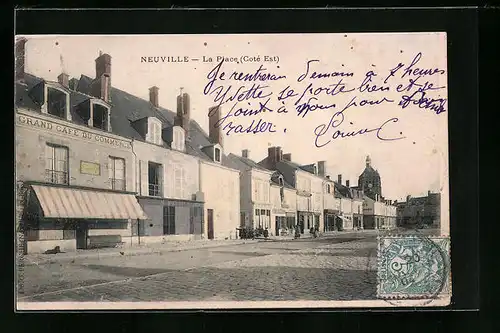 NEUVILLE — La Place (Coté Est)
Je rentrerai Demain à 7 heures
Yvette se porte bien et se
joint à moi pour
t'embrasser.
Louise C.
GRAND CAFÉ DU COMMERCE